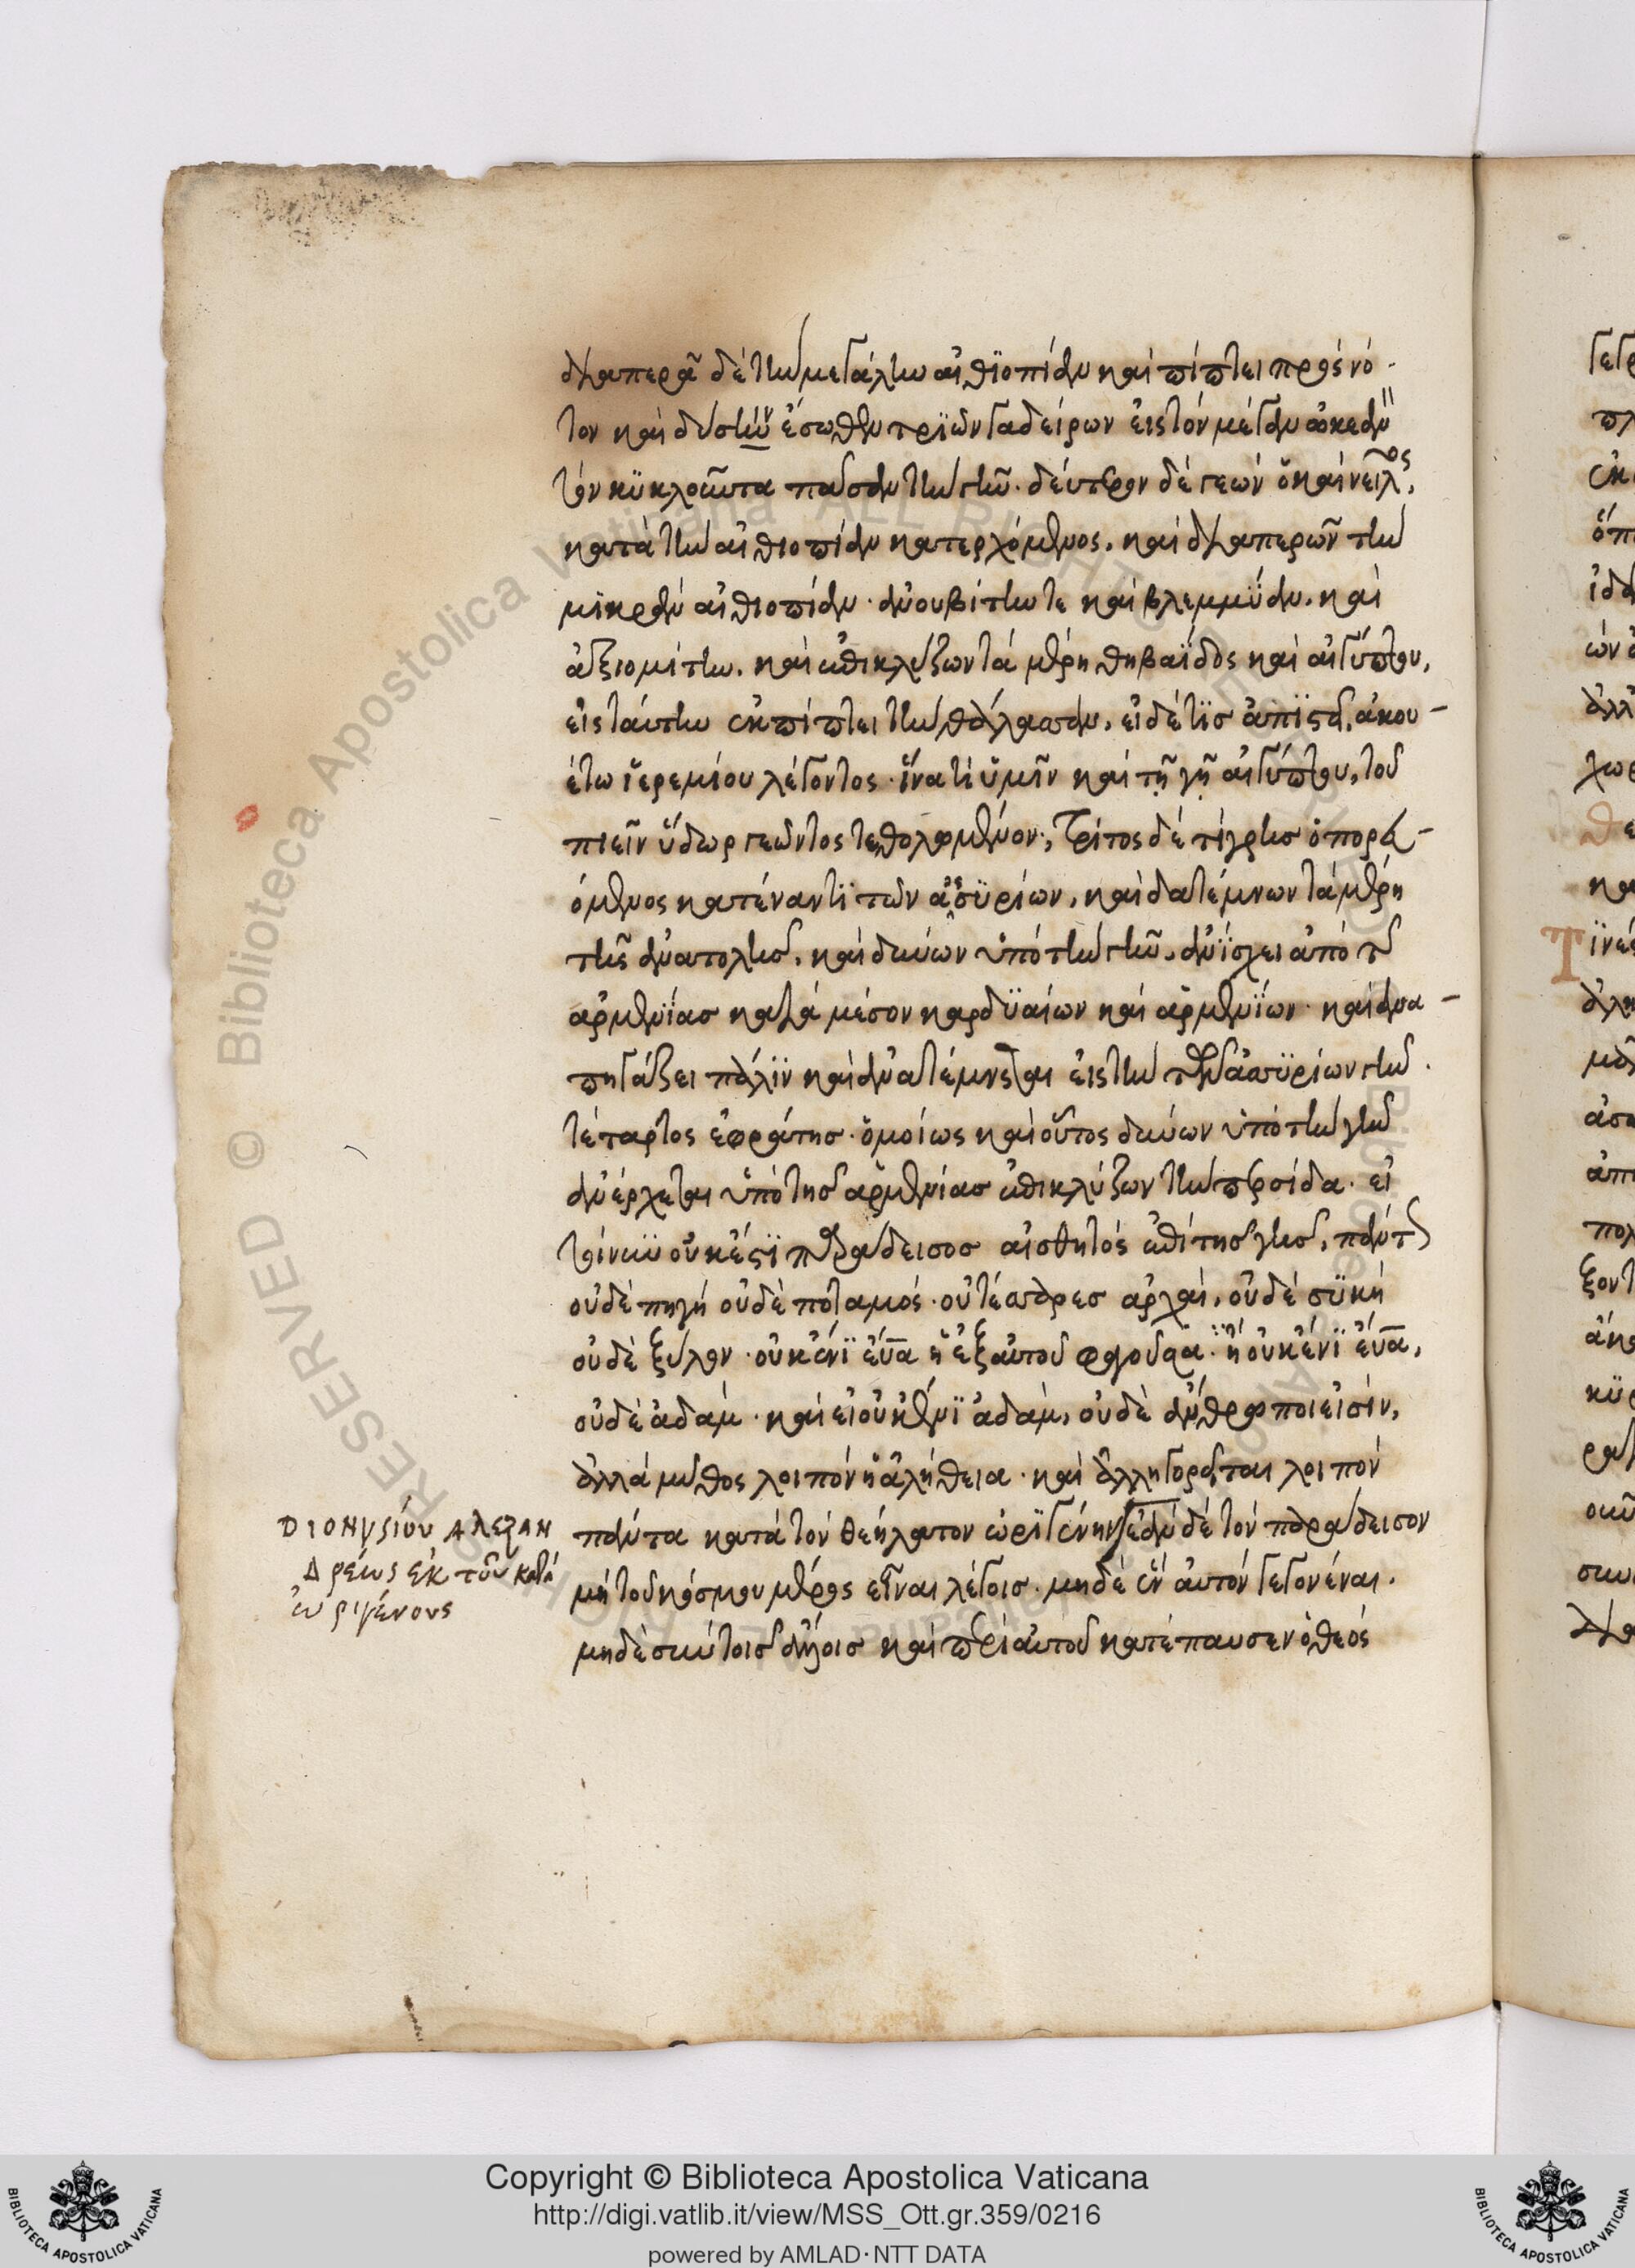 διαπερᾶ δὲ τὴν μεγάλην αἰθϊοπίαν καὶ πίπτει πρὸς νό-
τον καὶ δύσιν ἔσωθεν τρϊῶν γαδείρων εἰς τὸν μέγαν ὠκεανὸν
τὸν κϋκλοῦντα πάσαν τὴν γῆν. δεύτερον δὲ γεών ὁ καὶ νεῖλος,
κατὰ τὴν αἰθιοπίαν κατερχόμενος, καὶ διαπερῶν τὴν
μϊκρὰν αἰθιοπίαν. ἀνουβίτην τε καὶ βλεμμϋΐαν, καὶ
ἀξιομίτην. καὶ ἐπικλύζων τὰ μέρη θηβαΐδος καὶ αἰγύπτου,
εἰς ταύτην ἐκπίπτει τὴν θάλασσαν. εἰ δέ τϊσ ἀπϊστεῖ, ἀκου-
έτω ϊερεμίου λέγοντος. ἵνα τί ὑμῖν καὶ τῇ γῇ αἰγύπτου, τοῦ
πιεῖν ὕδωρ γεῶντος τεθολωμένον; τρίτος δὲ τίγρισ ὁ πορευ-
όμενος κατέναντϊ τῶν ἀσσϋρίων, καὶ διατέμνων τὰ μέρη
τῆς ἀνατολῆσ, καὶ δύνων ὑπὸ τὴν γῆν, ἀνΐσχει ἀπὸ τῆς
ἀρμενΐασ κατὰ μέσον καρδϋαίων καὶ ἀρμενΐων. καὶ ἀνα-
πηγάζει πάλϊν καὶ ἀνατέμνεται εἰς τὴν τῶν ἀσσϋρίων γῆν.
τέταρτος εὐφράτησ. ὁμοίως καὶ οὗτος δύνων ὑπὸ τὴν γῆν
ἀνέρχεται ὑπὸ τῆσ ἀρμενίασ ἐπικλύζων τὴν περσίδα. εἰ
τοίνυν οὐκ ἔστϊ παράδεισοσ αἰσθητὸς ἐπὶ τῆσ γῆσ, πάντως
οὐδὲ πηγὴ οὐδὲ ποταμός. οὐ τέσσαρεσ ἀρχαὶ, οὐδὲ σϋκῆ
οὐδὲ ξύλον. οὐκ ἔνϊ εὔα ἡ ἐξ αὐτοῦ φαγοῦσα. ἢ οὐκ ἔνϊ εὔα,
οὐδὲ ἀδάμ. καὶ εἰ οὐκ ἔνϊ ἀδὰμ, οὐδὲ ἄνθρωποι εἰσὶν,
ἀλλὰ μῦθος λοιπὸν ἡ ἀλήθεια. καὶ ἀλληγορεῖται λοιπὸν
πάντα κατὰ τὸν θεήλατον ὠρϊγένην ἐὰν δὲ τὸν παράδεισον
μὴ τοῦ κόσμου μέρος εἶναι λέγοισ. μηδὲ ἐν αὐτὸν γεγονέναι.
μηδὲ σὺν τοῖσ ἄλλοισ καὶ περὶ αὐτοῦ κατέπαυσεν ὁ θεὸς
Διονυσίου αλεξαν
δρέως ἐκ τοῦ κατὰ
ὠριγένους
Copyright © Biblioteca Apostolica Vaticana
http://digi.vatlib.it/view/MSS_Ott.gr.359/0216
powered by AMLAD·NTT DATA
BIBLIOTECA APOSTOLICA VATICANA
BIBLIOTECA APOSTOLICA VATICANA